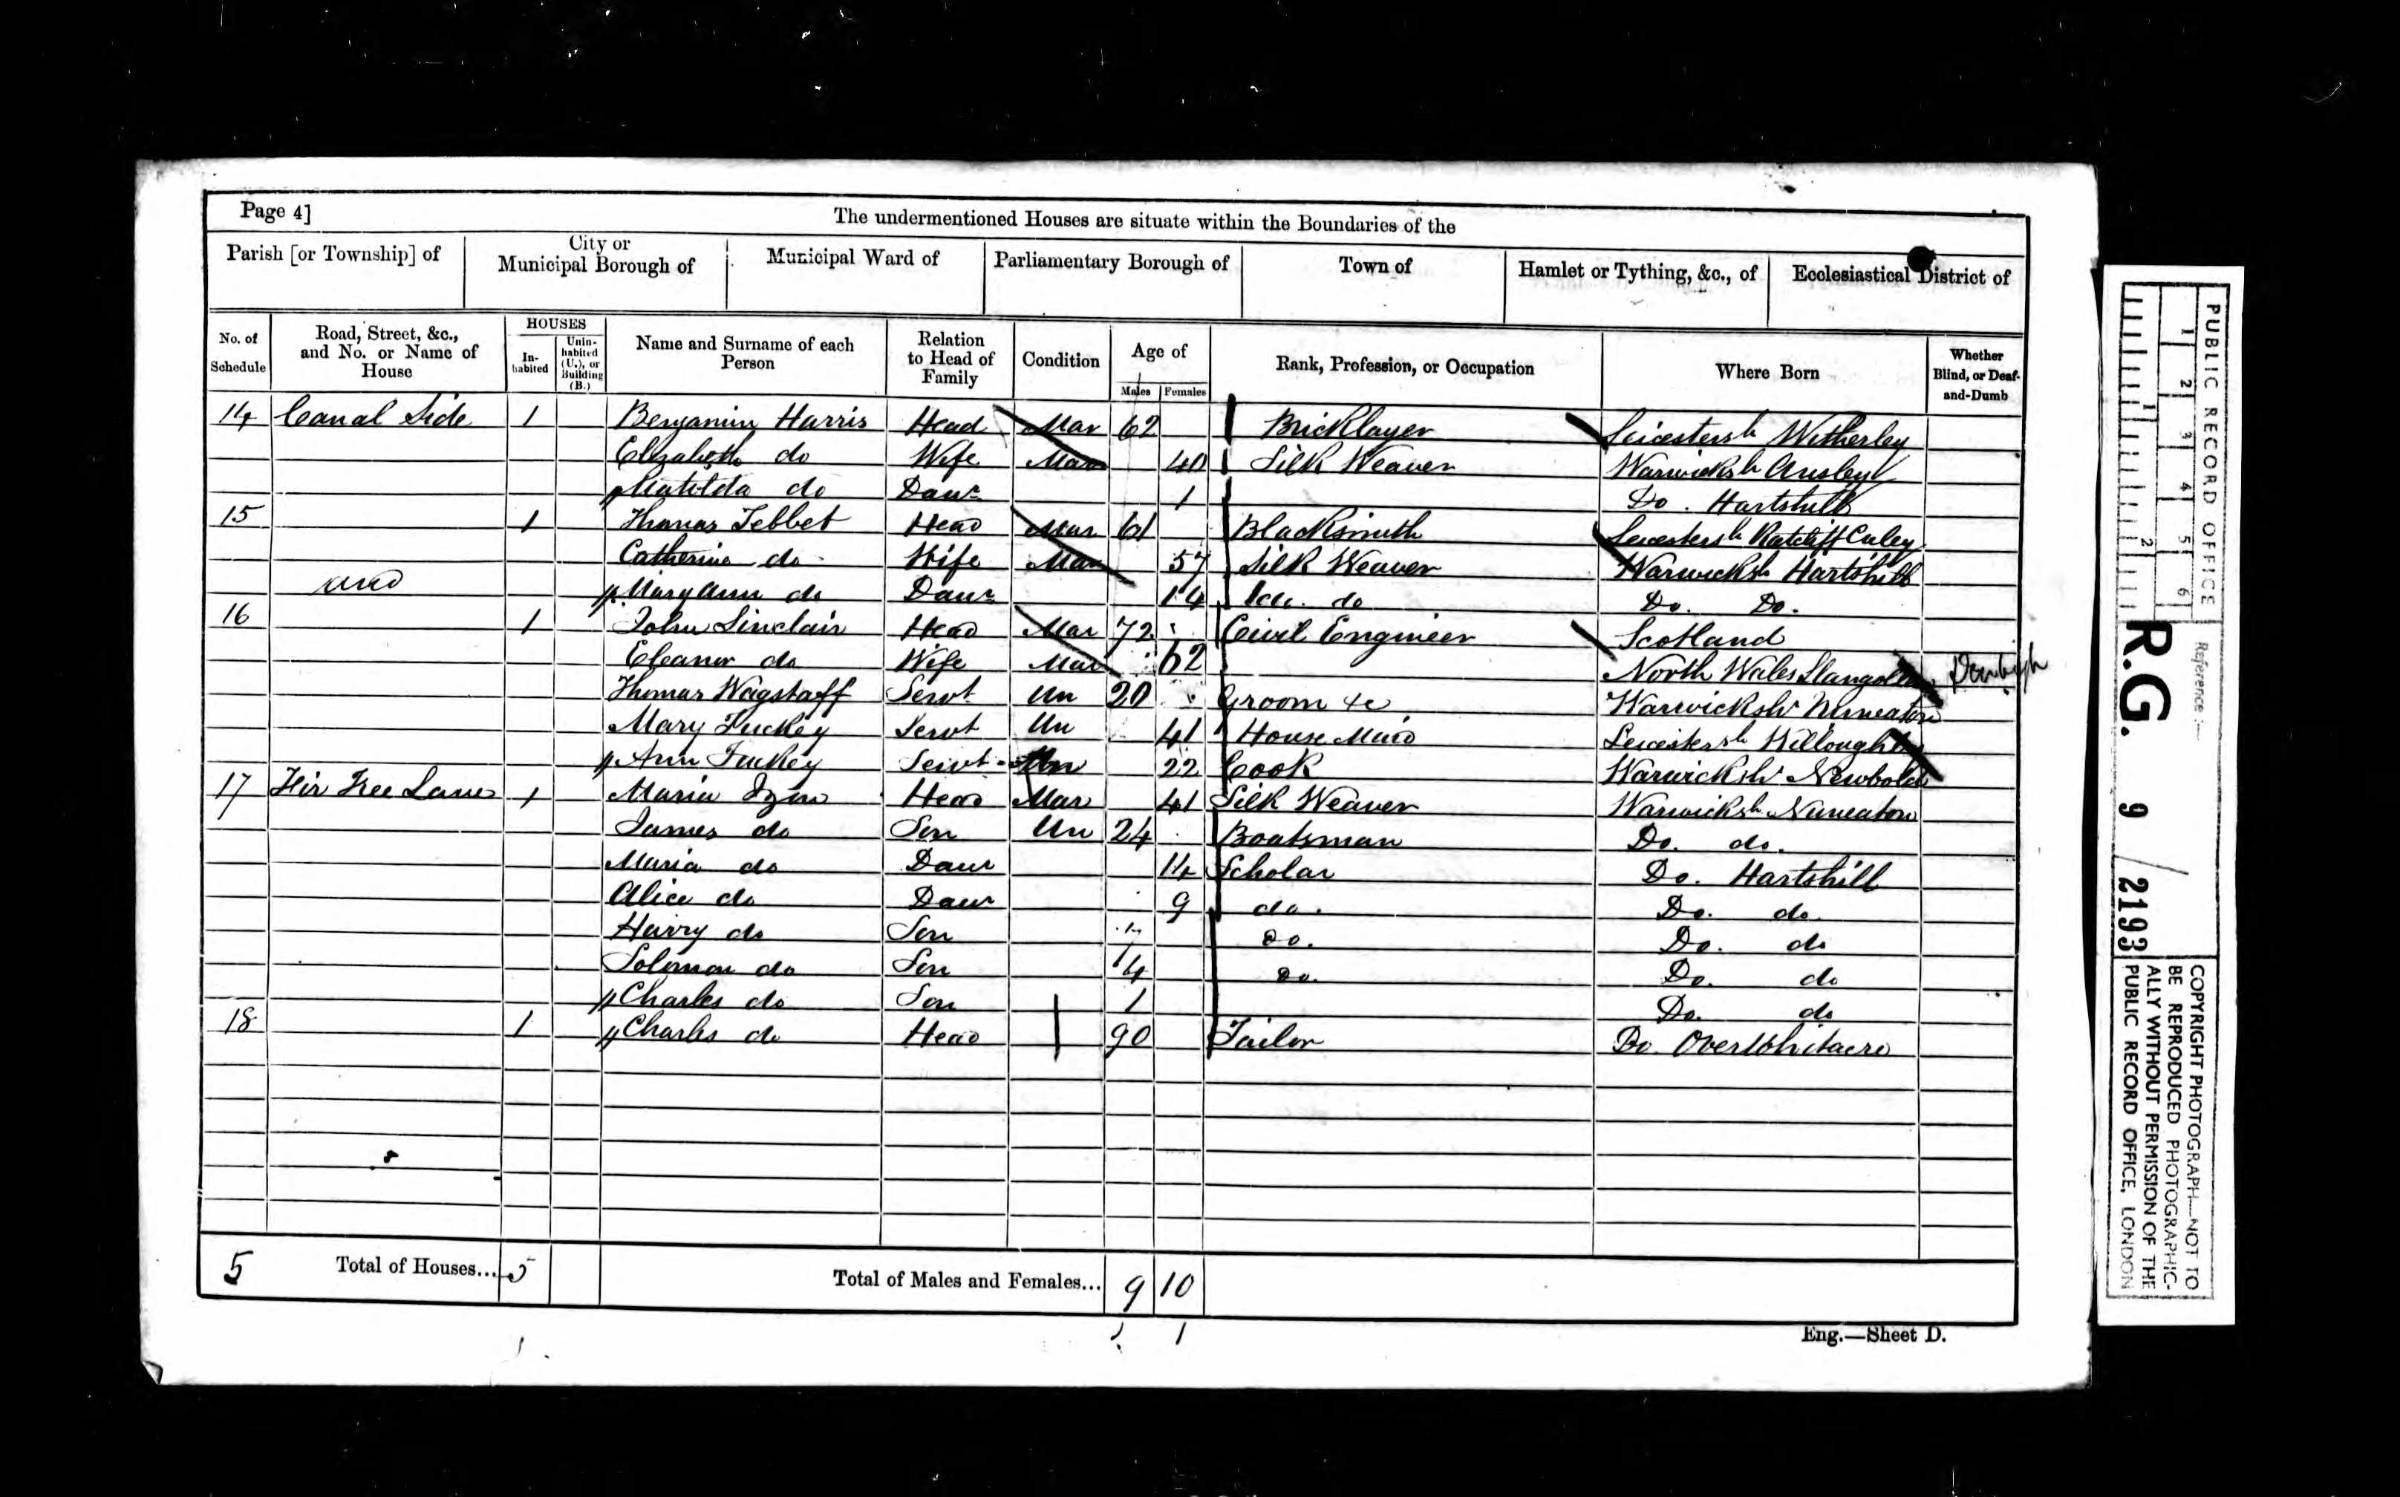 Page 4]
The undermentioned Houses are situate within the Boundaries of the
Parish [or Township] of
City or Municipal Borough of
Municipal Ward of
Parliamentary Borough of
Town of
Hamlet or Tything, &c., of
Ecclesiastical District of
No. of Schedule
Road, Street, &c., and No. or Name of House
HOUSES
In-habited
Unin-habited (U.), or Building (B.)
Name and Surname of each Person
Relation to Head of Family
Condition
Age of
Males
Females
Rank, Profession, or Occupation
Where Born
Whether Blind, or Deaf-and-Dumb
14 Canal Side 1 Benjamin Harris Head Mar 62 Bricklayer Leicestersh Witherley
Elizabeth do Wife Mar 40 Silk Weaver Warwicksh Ansley
Matilda do Daur 1 Do. Hartshill
15 1 Thomas Tebbet Head Mar 61 Blacksmith Leicestersh Ratcliff Culey
Catherine do Wife Mar 57 Silk Weaver Warwicksh Hartshill
Mary Ann do Daur 14 do. do Do. Do.
16 1 John Sinclair Head Mar 72 Civil Engineer Scotland
Eleanor do Wife Mar 62 North Wales Llangollen Denbigh
Thomas Wagstaff Servt Un 20 Groom &c Warwicksh Nuneaton
Mary Tuckey Servt Un 41 House Maid Leicestersh Willoughby
Ann Tuckey Servt Un 22 Cook Warwicksh Newbold
17 Fir Tree Lane 1 Maria Head Mar 41 Silk Weaver Warwicksh Nuneaton
James do Son Un 24 Boatsman Do. do.
Maria do Daur 14 Scholar Do. Hartshill
Alice do Daur 9 do. Do. do.
Harry do Son Do. Do. do
Solomon do Son 4 Do. Do. do
Charles do Son 1 Do. do
18 1 Charles do Head 90 Tailor Do. Over Whitacre
5 Total of Houses... 5 Total of Males and Females... 9 10
Eng.—Sheet D.
PUBLIC RECORD OFFICE
1 2 3 4 5 6
1 2
Reference:—
R.G. 9 / 2193
COPYRIGHT PHOTOGRAPH—NOT TO BE REPRODUCED PHOTOGRAPHIC-ALLY WITHOUT PERMISSION OF THE PUBLIC RECORD OFFICE, LONDON